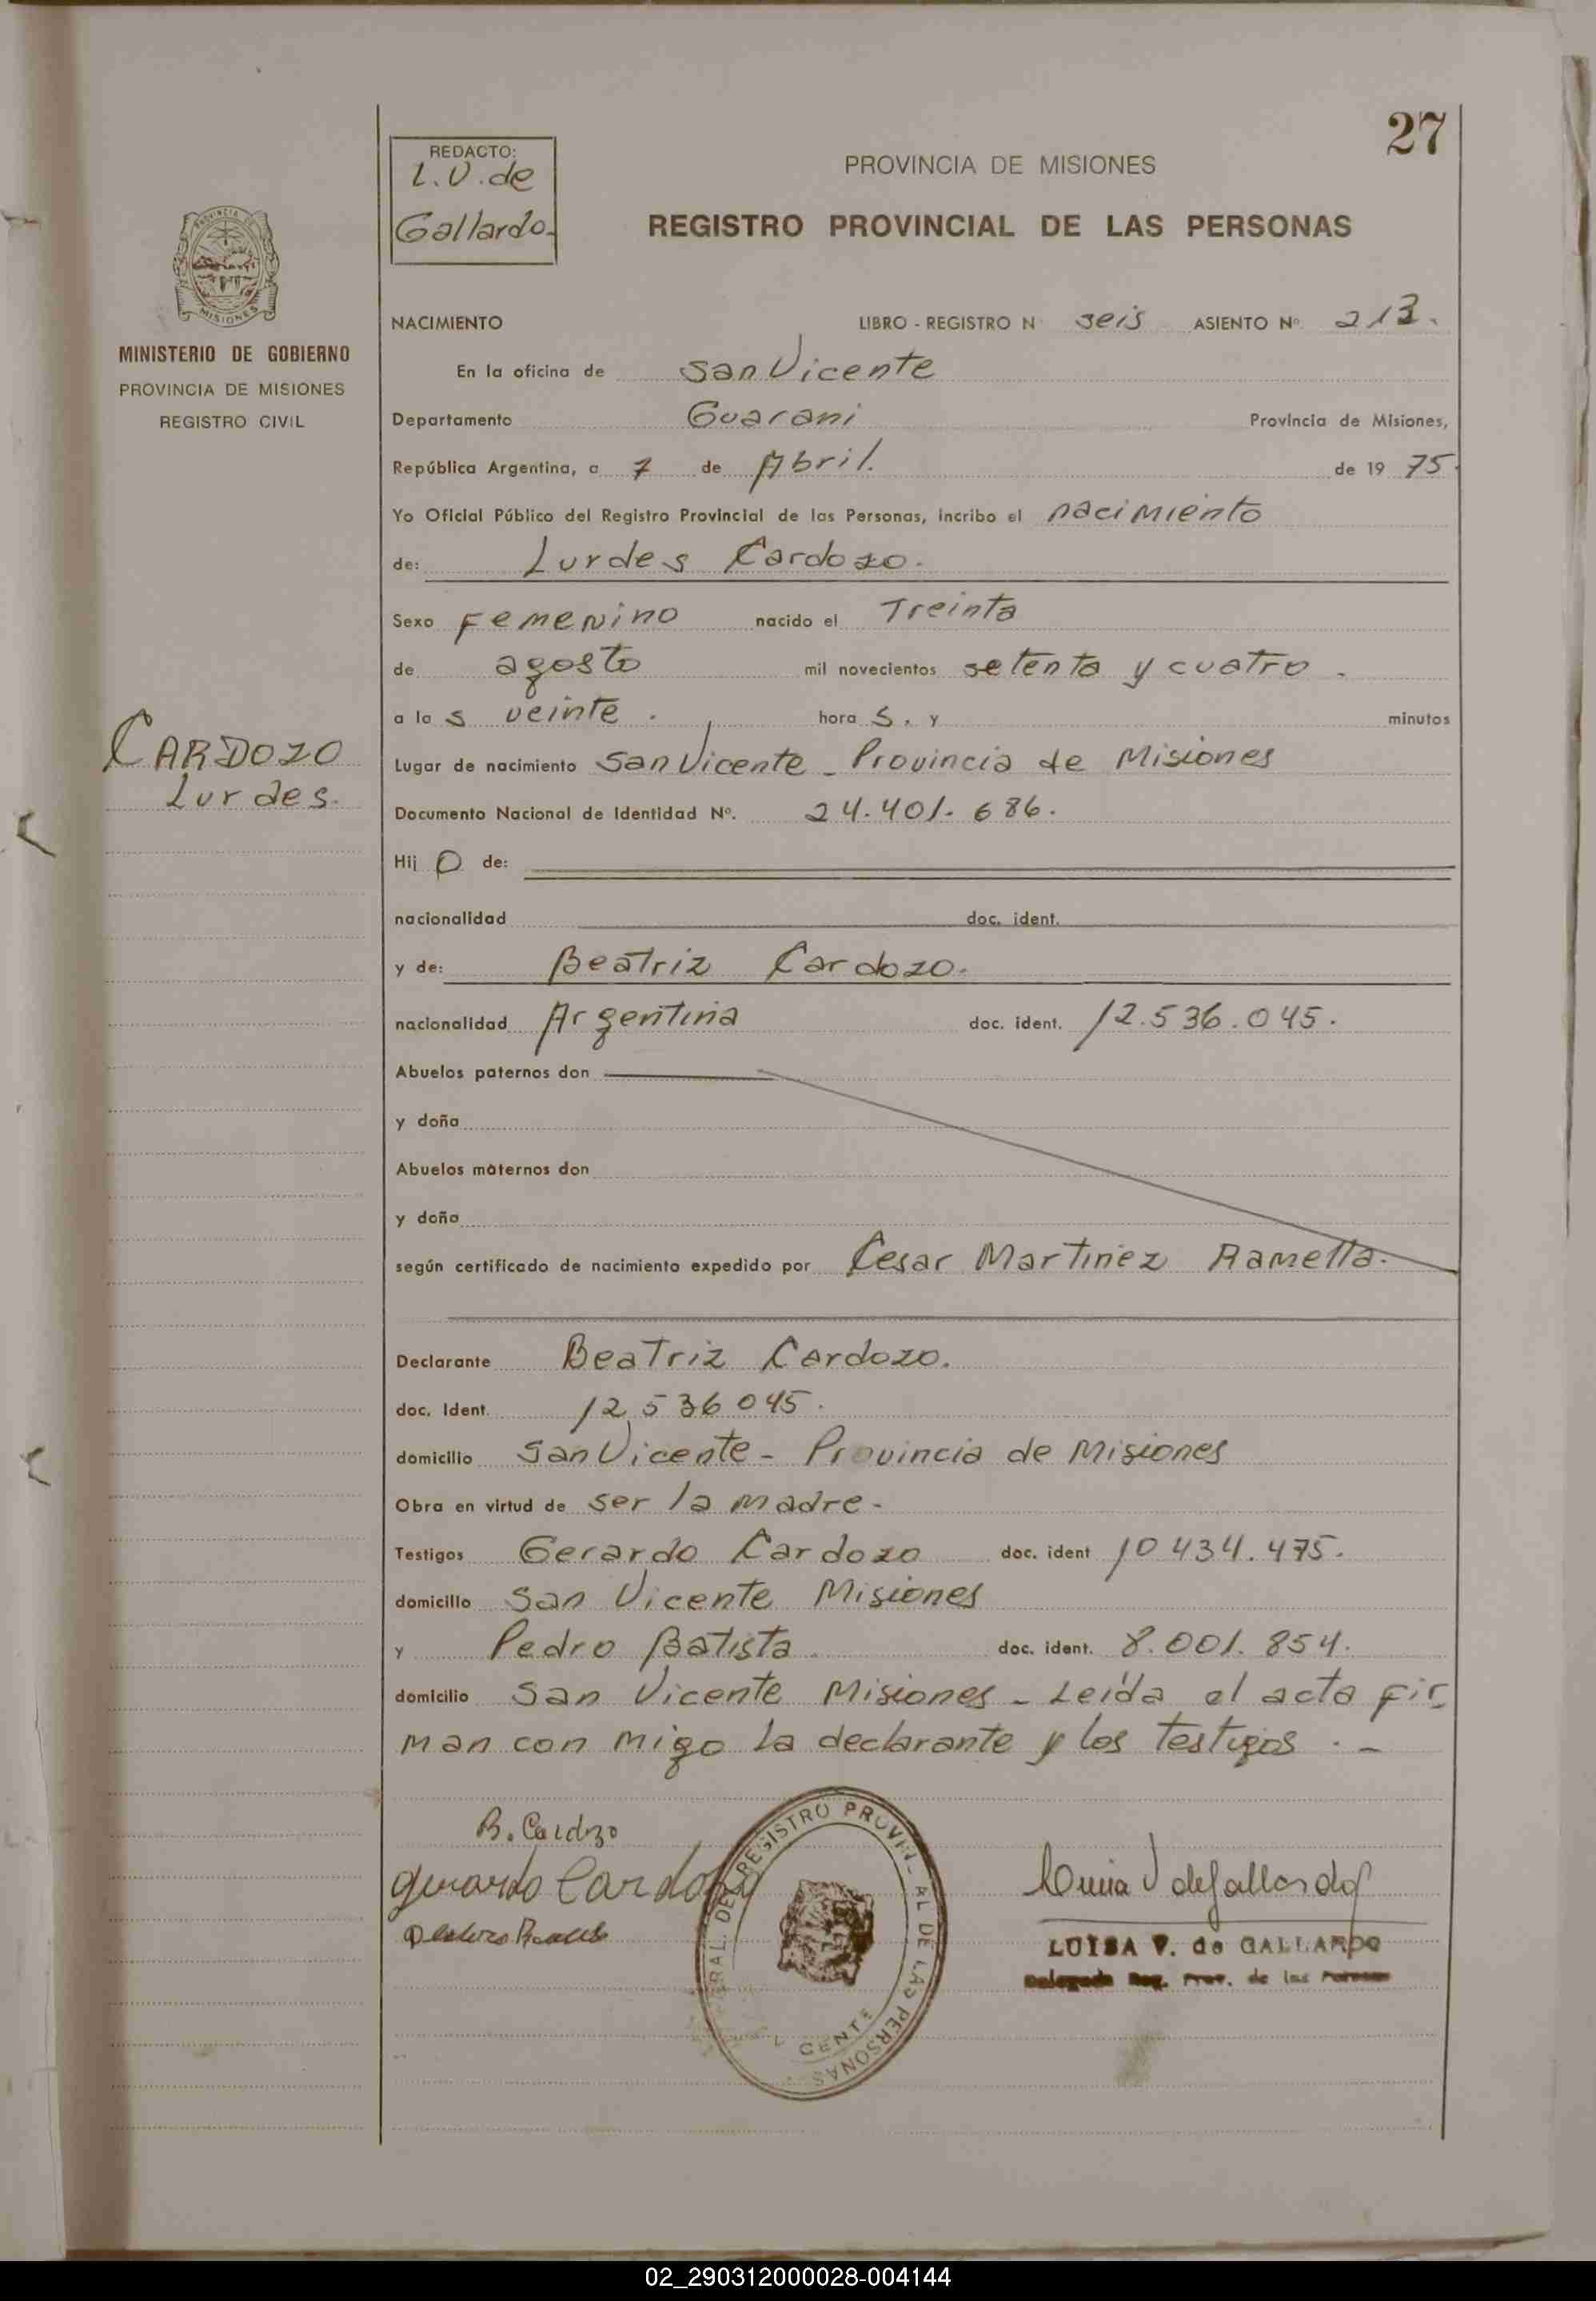 27
REDACTO:
L.V. de
Gallardo-
PROVINCIA DE MISIONES
REGISTRO PROVINCIAL DE LAS PERSONAS
PROVINCIA DE
MISIONES
MINISTERIO DE GOBIERNO
PROVINCIA DE MISIONES
REGISTRO CIVIL
CARDOZO
Lurdes.
NACIMIENTO LIBRO - REGISTRO N seis ASIENTO Nº. 213.
En la oficina de San Vicente
Departamento Guarani Provincia de Misiones,
República Argentina, a 7 de Abril. de 19 75.
Yo Oficial Público del Registro Provincial de las Personas, incribo el nacimiento
de: Lurdes Cardozo.
Sexo Femenino nacido el Treinta
de agosto mil novecientos setenta y cuatro.
a la s veinte. hora s. y minutos
Lugar de nacimiento San Vicente - Provincia de Misiones
Documento Nacional de Identidad Nº. 24.401.686.
Hij o de:
nacionalidad doc. ident.
y de: Beatriz Cardozo.
nacionalidad Argentina doc. ident. 12.536.045.
Abuelos paternos don
y doña
Abuelos maternos don
y doña
según certificado de nacimiento expedido por Cesar Martinez Ramella.
Declarante Beatriz Cardozo.
doc. Ident. 12,536045.
domicilio San Vicente - Provincia de Misiones
Obra en virtud de ser la madre-
Testigos Gerardo Cardozo doc. ident 10434.475.
domicilio San Vicente Misiones
y Pedro Batista. doc. ident. 8.001.854.
domicilio San Vicente Misiones - Leída el acta fir
man con migo la declarante y los testigos.-
B. Cardozo
Gerardo Cardozo
REGISTRO DE LAS PERSONAS
LUISA V. de GALLARDO
Delegada Reg. Prov. de las Personas
02_290312000028-004144